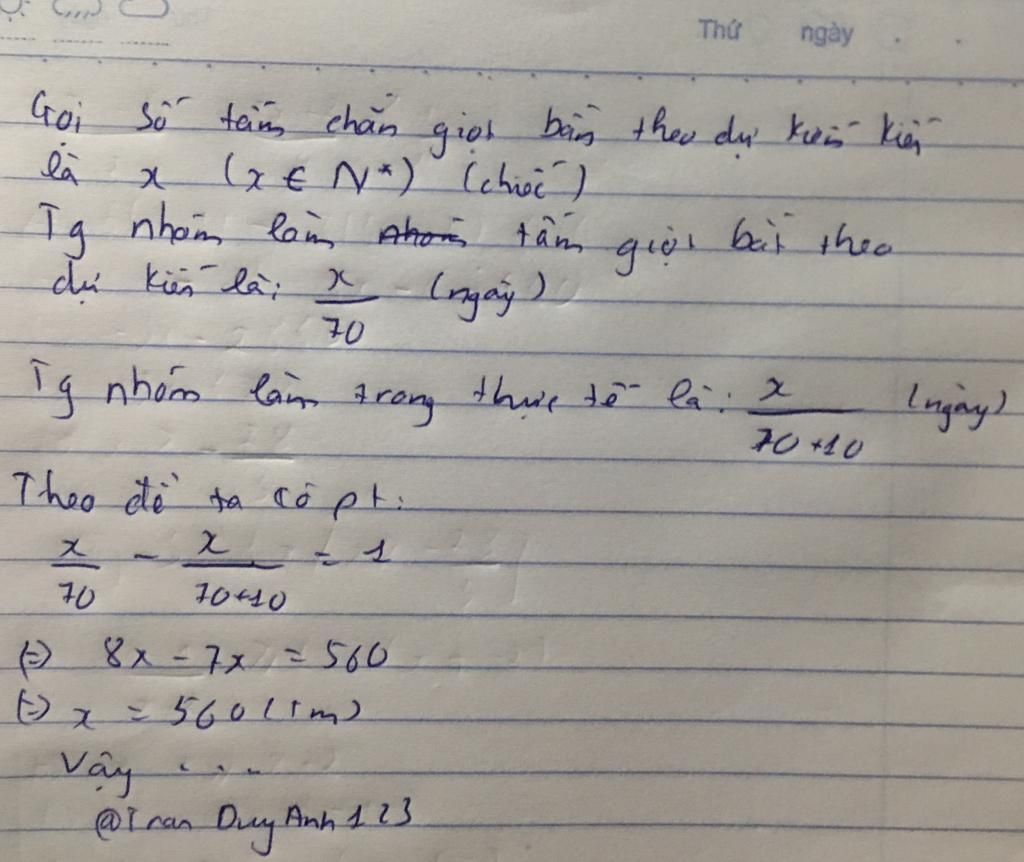 Thứ ngày
Gọi số tấm chắn giọt bắn theo dự kiến kiến
là x (x ∈ N*) (chiếc)
Tg nhóm làm tấm giọt bắt theo
dự kiến là: x/70 (ngày)
Tg nhóm làm trong thực tế là: x/(70+10) (ngày)
Theo đề ta có pt:
x/70 - x/(70+10) = 1
(=) 8x - 7x = 560
(=) x = 560 (tm)
Vậy ...
@Tran Duy Anh 123